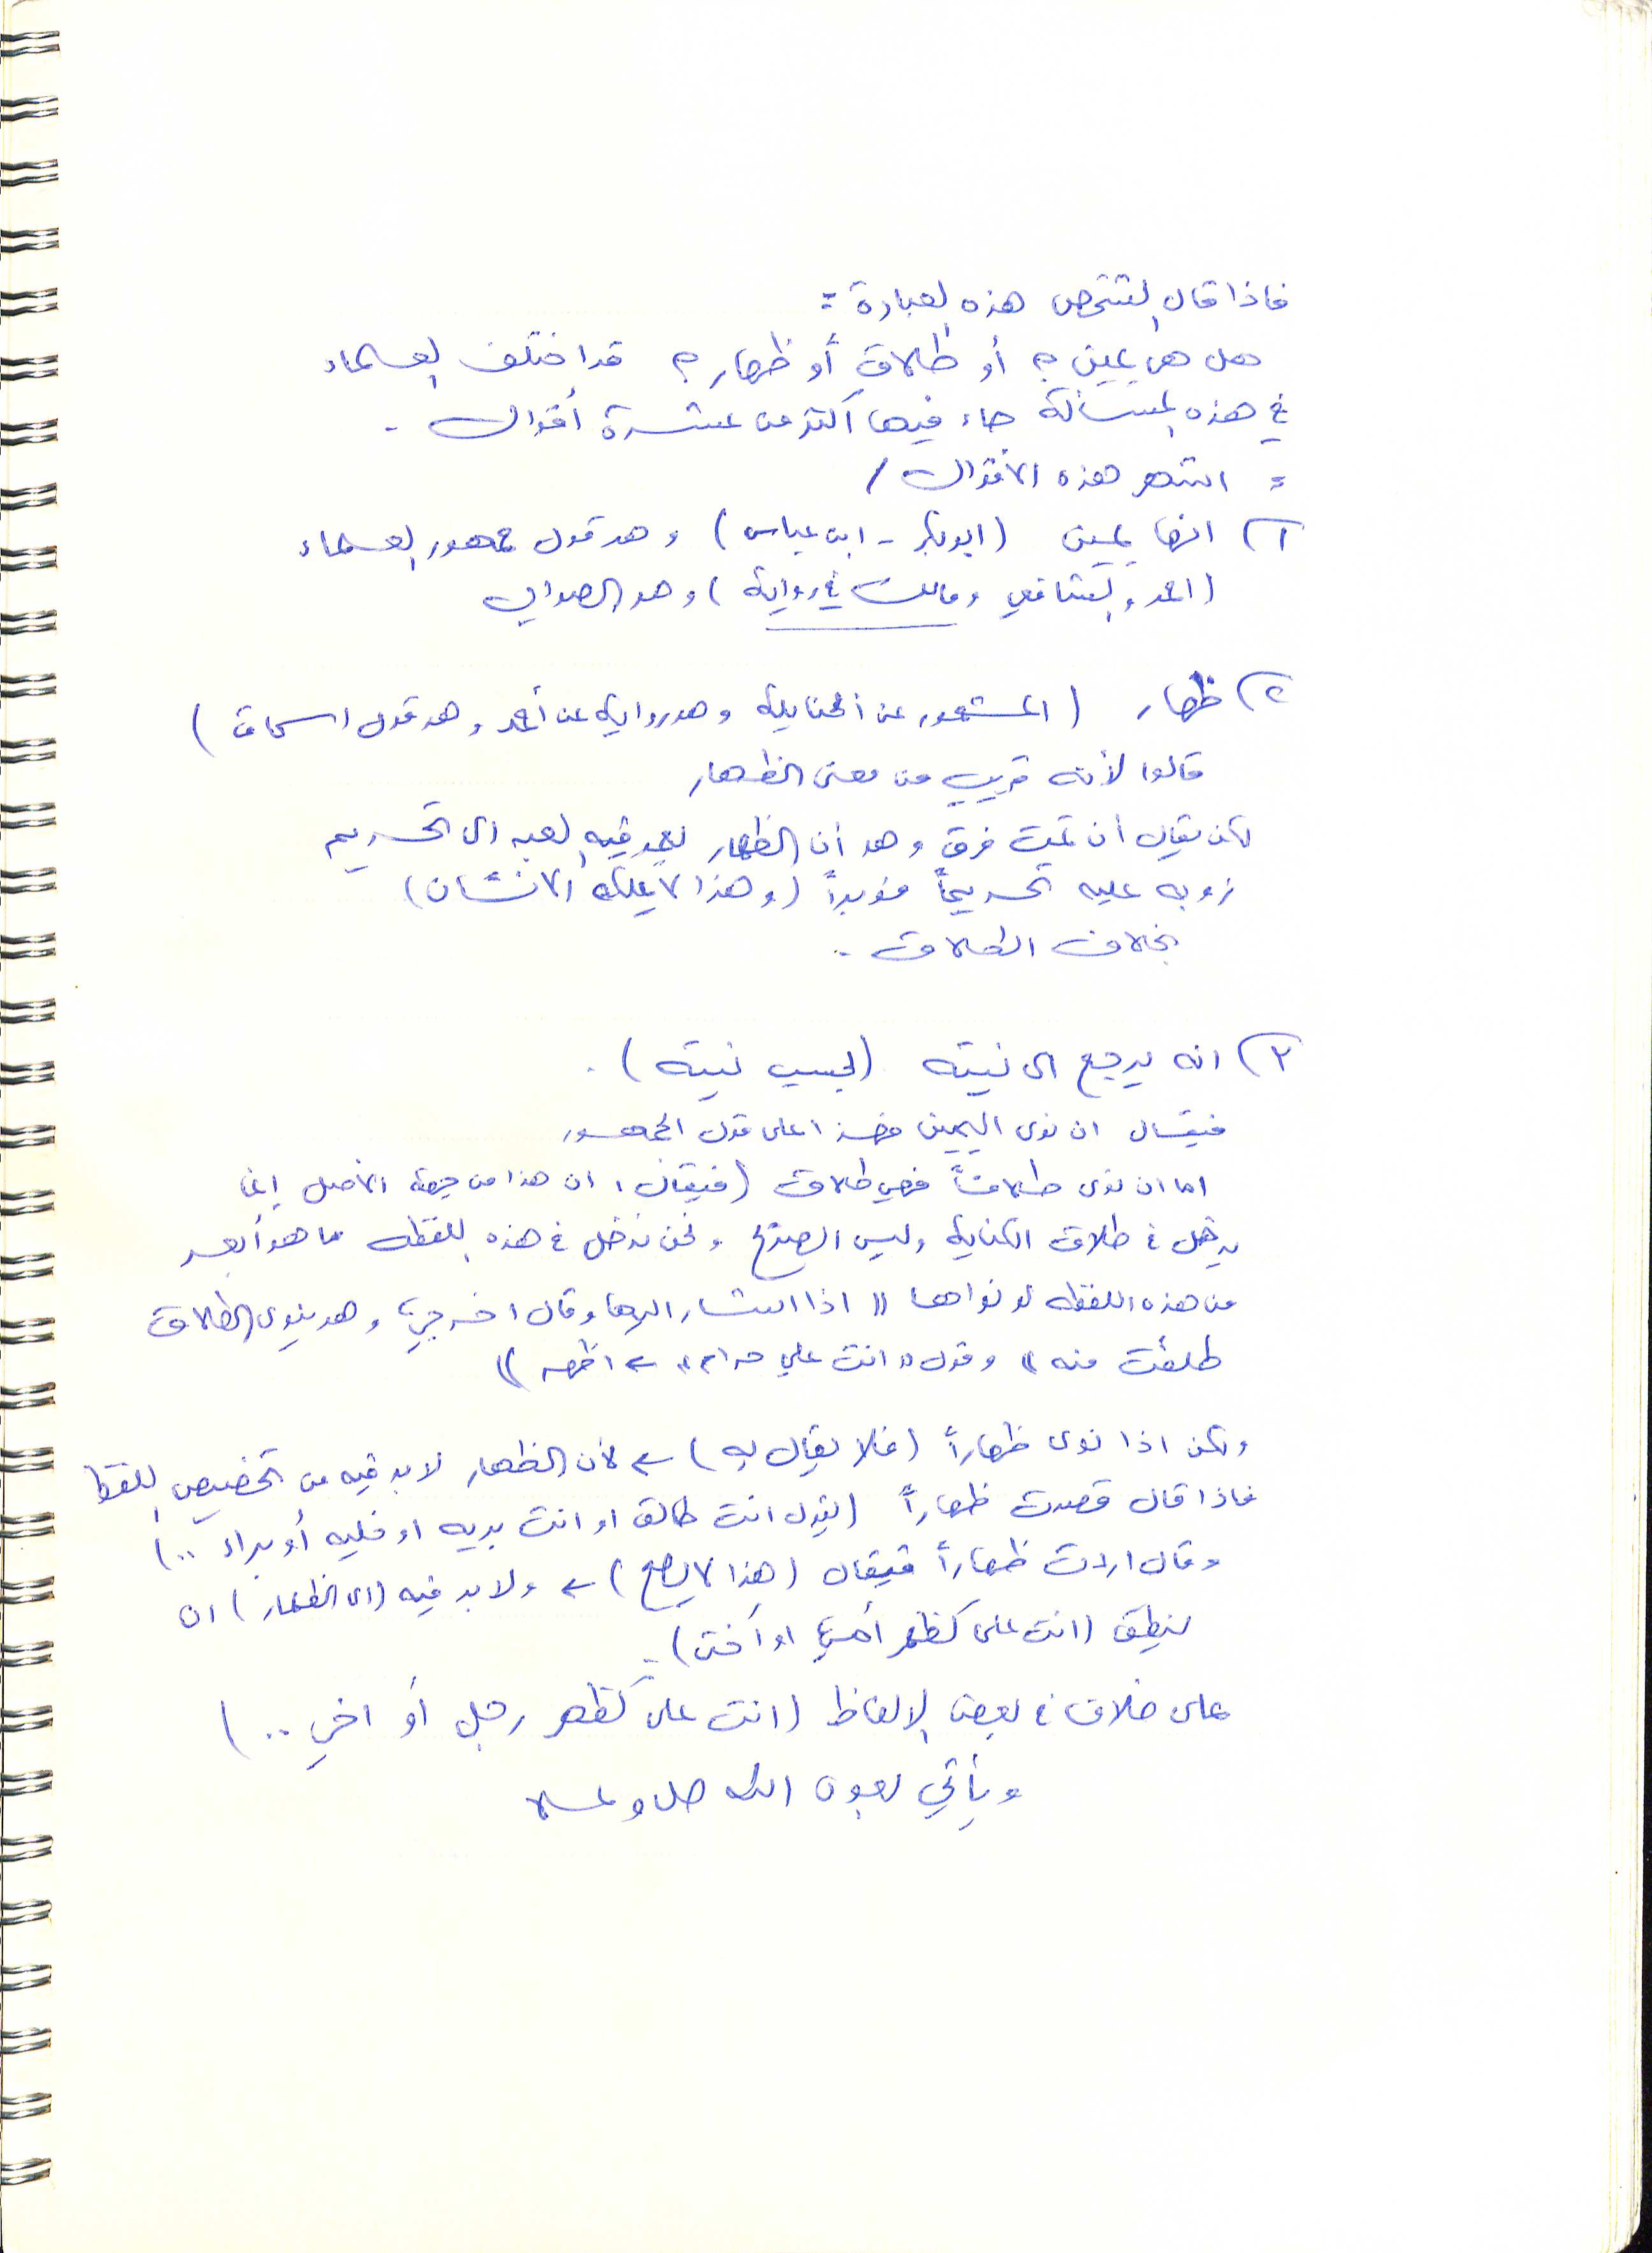 فاذا قال الشخص هذه العبارة =
هل هي يمين ؟ أو طلاق أو ظهار ؟ قد اختلف العلماء
في هذه المسألة جاء فيها أكثر من عشرة أقوال .
= اشهر هذه الأقوال /
١) انها يمين (ابوبكر - ابن عباس) وهو قول جمهور العلماء
(احمد والشافعي ومالك في رواية) وهو الصواب
٢) ظهار (المشهور عن الحنابلة وهو رواية عن أحمد وهو قول اسحاق)
قالوا لأنه قريب من معنى الظهار
لكن يقال أن ثمت فرق وهو أن الظهار يعمد فيه العبد الى تحريم
زوجه عليه تحريماً مؤبداً (وهذا لا يملكه الانسان)
بخلاف الطلاق .
٣) انه يرجع الى نيته (بحسب نيته) .
فيقال ان نوى اليمين فهذا على قول الجمهور
اما ان نوى طلاقاً فهي طلاق (فيقال : ان هذا من جهة الأصل إنما
يدخل في طلاق الكناية وليس الصريح ونحن ندخل في هذه اللفظه ما هو أبعد
من هذه اللفظه لو نواها (( اذا اشار اليها وقال اخرجي وهو ينوي الطلاق
طلقت منه )) وقول "انت علي حرام" ← اظهر ))
ولكن اذا نوى ظهاراً (فلا يقال به) ← لأن الظهار لابد فيه من تخصيص اللفظ
فاذا قال قصدت ظهاراً (يقول انت طالق او انت بريه او خليه أو براء ..)
وقال اردت ظهاراً فيقال (هذا لا يصلح) ← ولابد فيه (اي الظهار) ان
ينطق (انت علي كظهر أمي او أختي) .
على خلاف في بعض الالفاظ (انت علي كظهر رجل أو اخي ..)
ويأتي بعون الله جل وعلا